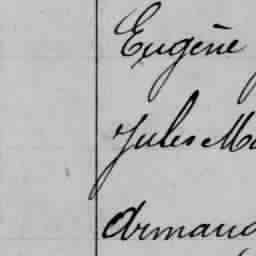 Eugène
Jules Ma
Armand